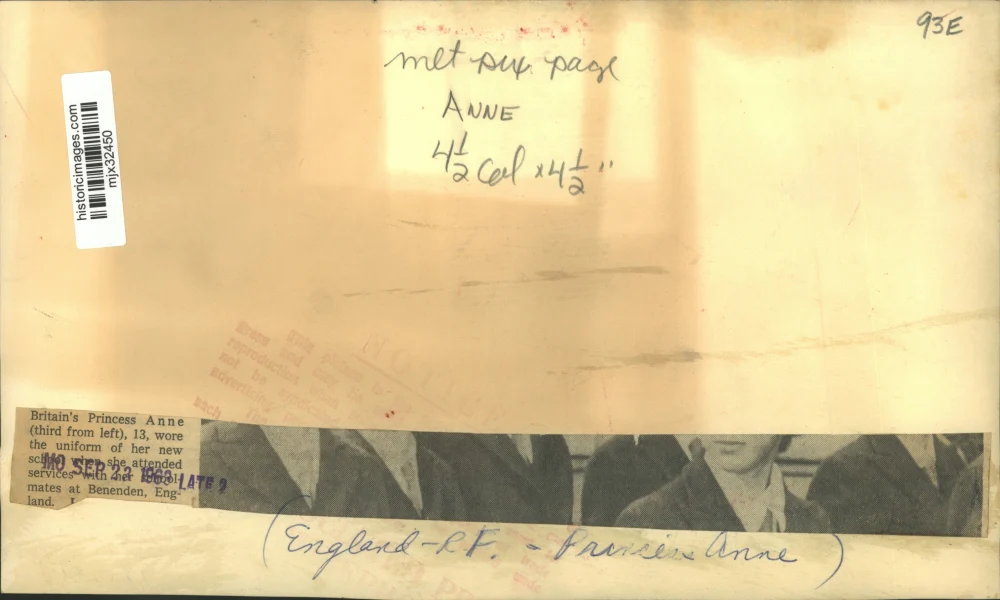 93E
met pix page
ANNE
4 1/2 Col x 4 1/2 "
historicimages.com
mjx32450
NO
reproduction
not be
advertising
Britain's Princess Anne
(third from left), 13, wore
the uniform of her new
she attended
services with her
mates at Benenden, Eng-
land.
MO SEP 23 1963 LATE 2
(England-R.F. - Princess Anne)